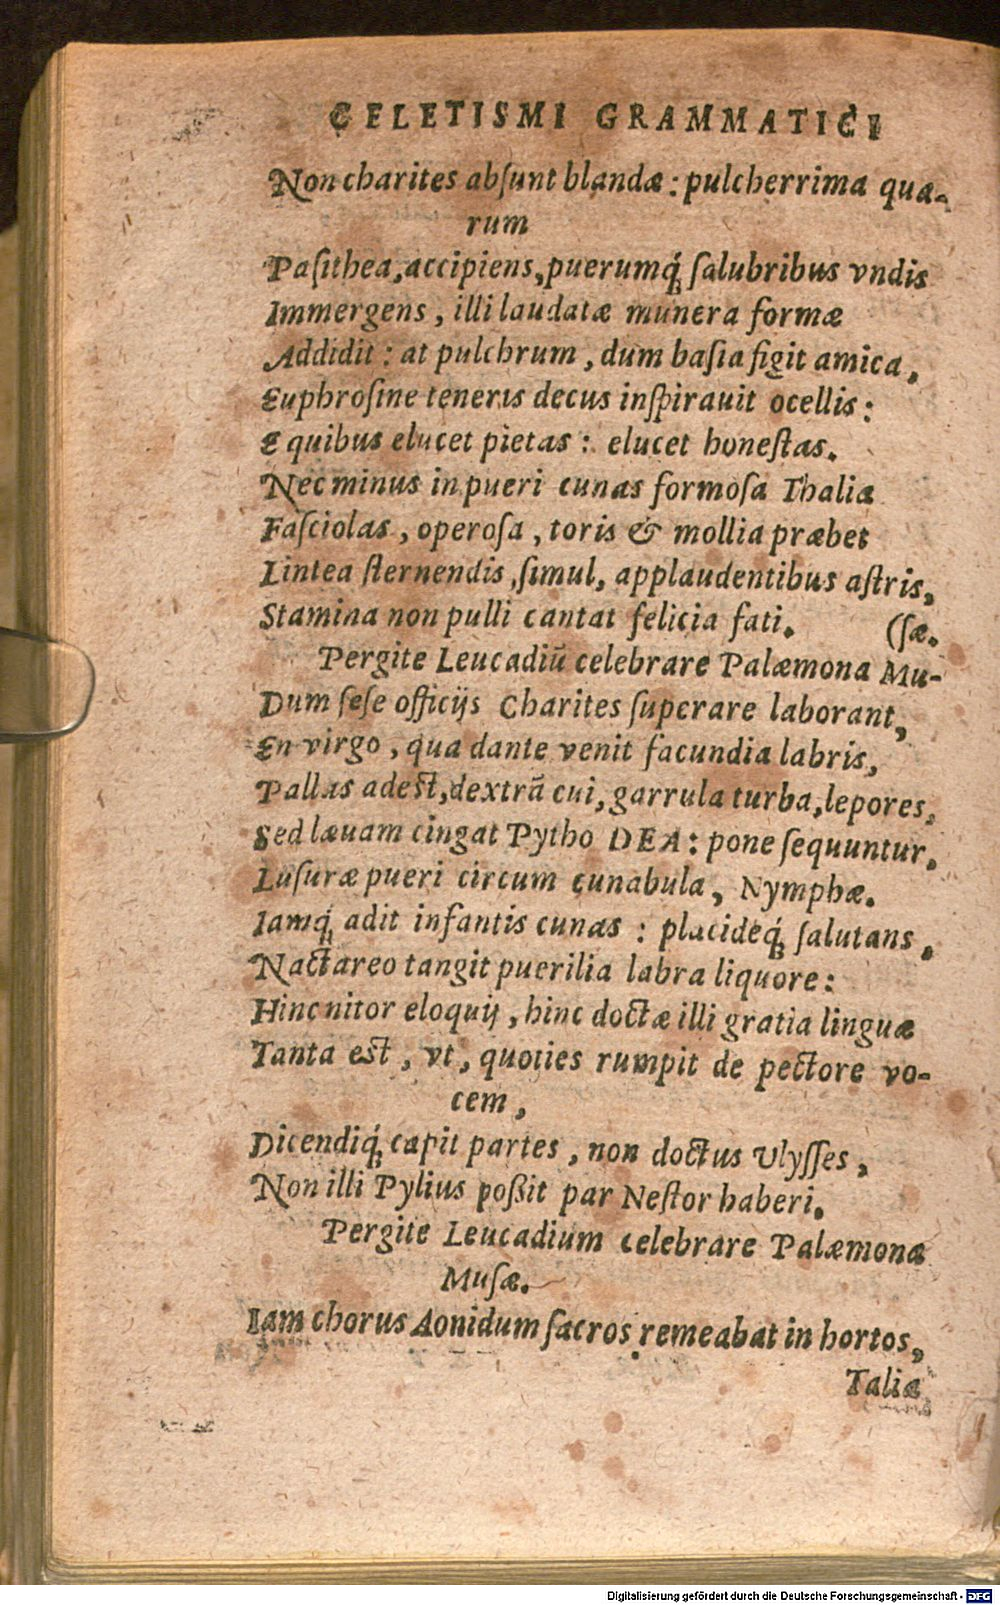 CELETISMI GRAMMATICI
Non charites absunt blandæ: pulcherrima qua-
rum
Pasithea, accipiens, puerumq́; salubribus vndis
Immergens, illi laudatæ munera formæ
Addidit: at pulchrum, dum basia figit amica,
Euphrosine teneris decus inspirauit ocellis:
E quibus elucet pietas: elucet honestas.
Nec minus in pueri cunas formosa Thalia
Fasciolas, operosa, toris & mollia præbet
Lintea sternendis, simul, applaudentibus astris,
Stamina non pulli cantat felicia fati. (sæ.
Pergite Leucadiū celebrare Palæmona Mu-
Dum sese officijs Charites superare laborant,
En virgo, qua dante venit facundia labris,
Pallas adest, dextrā cui, garrula turba, lepores,
Sed læuam cingat Pytho DEA: pone sequuntur,
Lusuræ pueri circum cunabula, Nymphæ.
Iamq́; adit infantis cunas: placideq́; salutans,
Nactareo tangit puerilia labra liquore:
Hinc nitor eloquij, hinc doctæ illi gratia linguæ
Tanta est, vt, quoties rumpit de pectore vo-
cem,
Dicendiq́; capit partes, non doctus Vlysses,
Non illi Pylius poßit par Nestor haberi.
Pergite Leucadium celebrare Palæmona
Musæ.
Iam chorus Aonidum sacros remeabat in hortos,
Talia
Digitalisierung gefördert durch die Deutsche Forschungsgemeinschaft - DFG